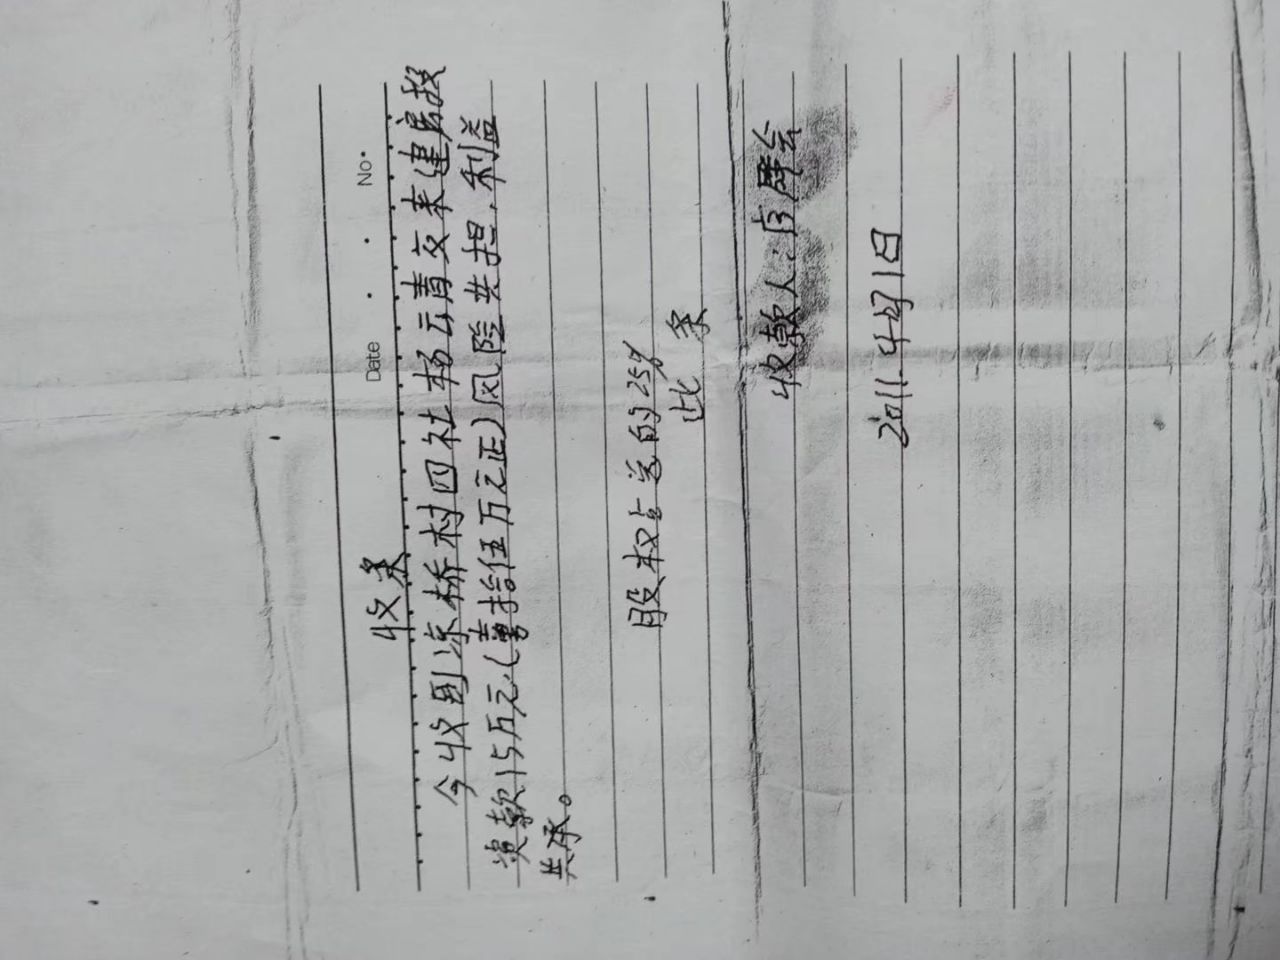 Date . . No.
收条
今收到凉桥村四社杨云青交来建房投
资款15万元.(壹拾伍万元正)风险共担,利益
共承。
股权占总的25%
此 条
收款人:
2011.4月1日